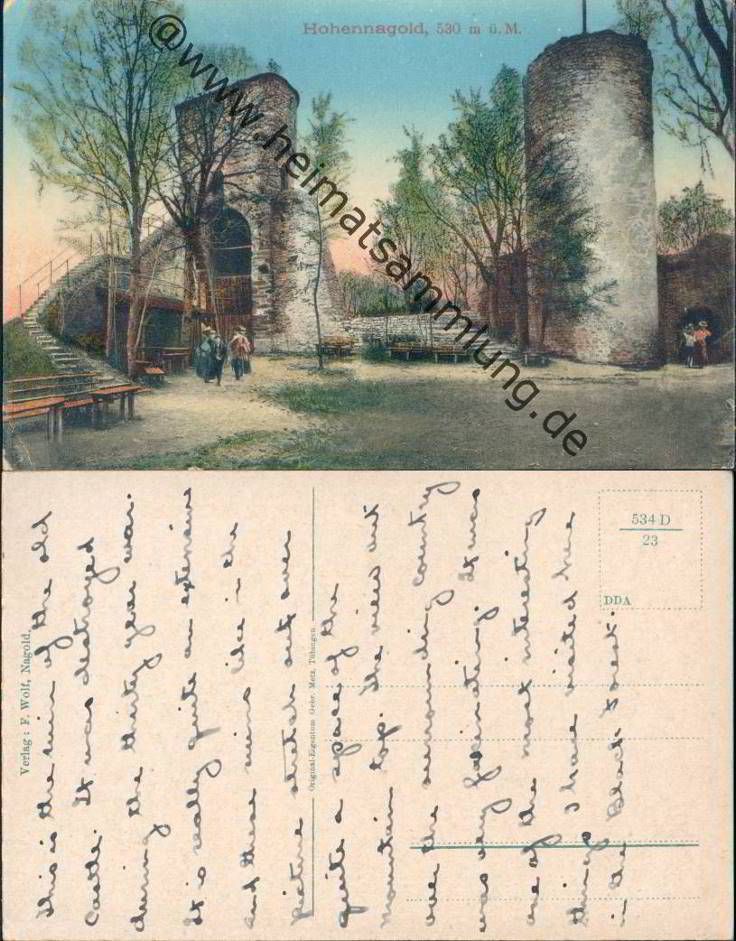 Hohennagold, 530 m ü. M.
@www.heimatsammlung.de
Verlag: F. Wolf, Nagold.
Original-Eigentum Gebr. Metz, Tübingen
534 D
23
DDA
This is the ruin of the old
Castle. It was destroyed
during the thirty year war.
It is really quite an extensive
and these ruins like in the
picture stretch out over
quite a space of the
mountain top. The view out
over the surrounding country
was very fascinating. It was
one of the most interesting
things I have visited here
in the Black Forest.